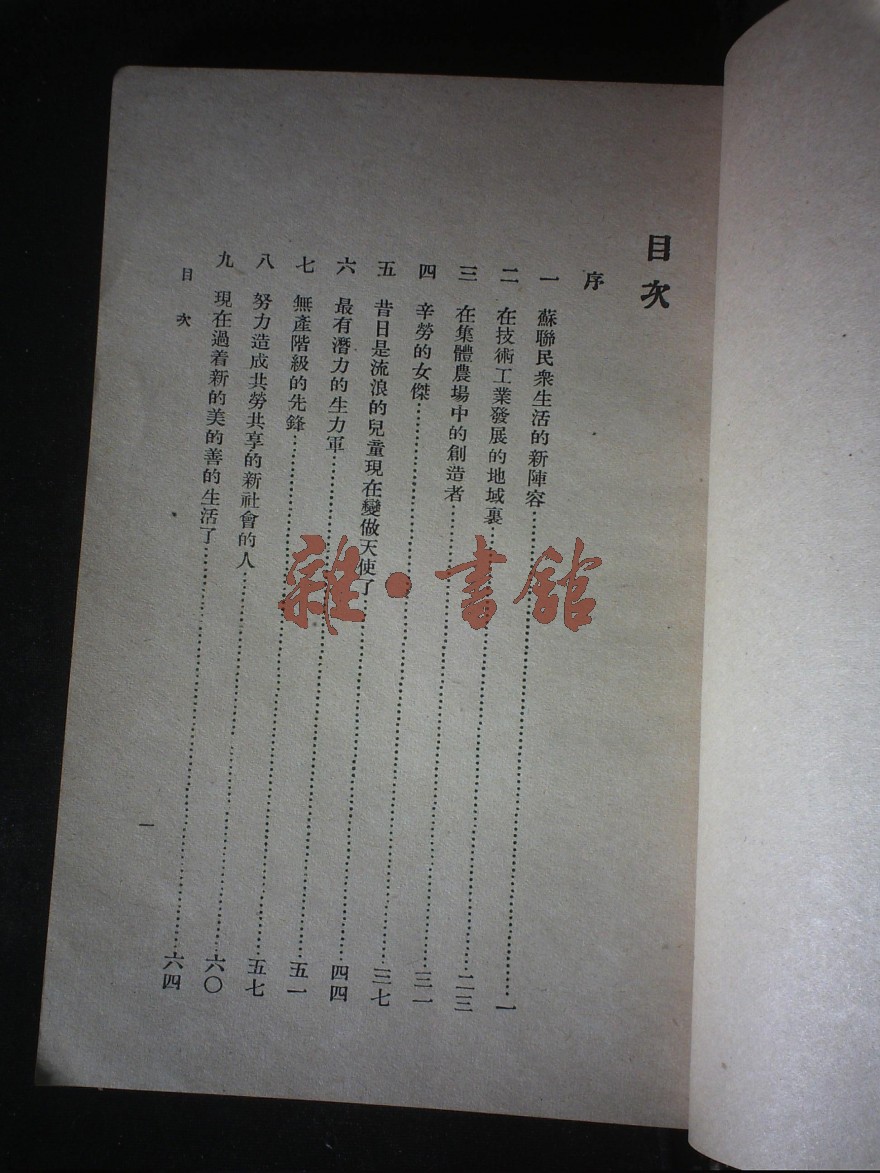 目次
序
一 蘇聯民衆生活的新陣容……一
二 在技術工業發展的地域裏……二三
三 在集體農場中的創造者……三一
四 辛勞的女傑……三七
五 昔日是流浪的兒童現在變做天使了……四四
六 最有潛力的生力軍……五一
七 無產階級的先鋒……五七
八 努力造成共勞共享的新社會的人……六〇
九 現在過着新的美的善的生活了……六四
目次
一
雜·書舘